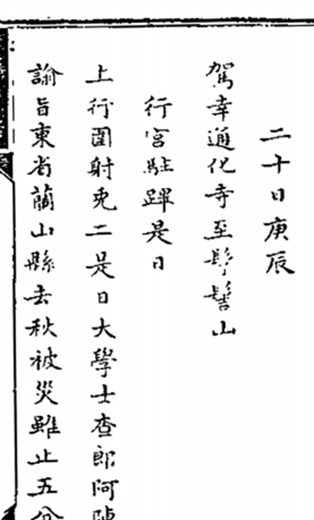 二十日庚辰
駕幸通化寺至髽髻山
行宮駐蹕是日
上行圍射兎二是日大學士查郎阿陳
諭旨東省蘭山縣去秋被災雖止五分